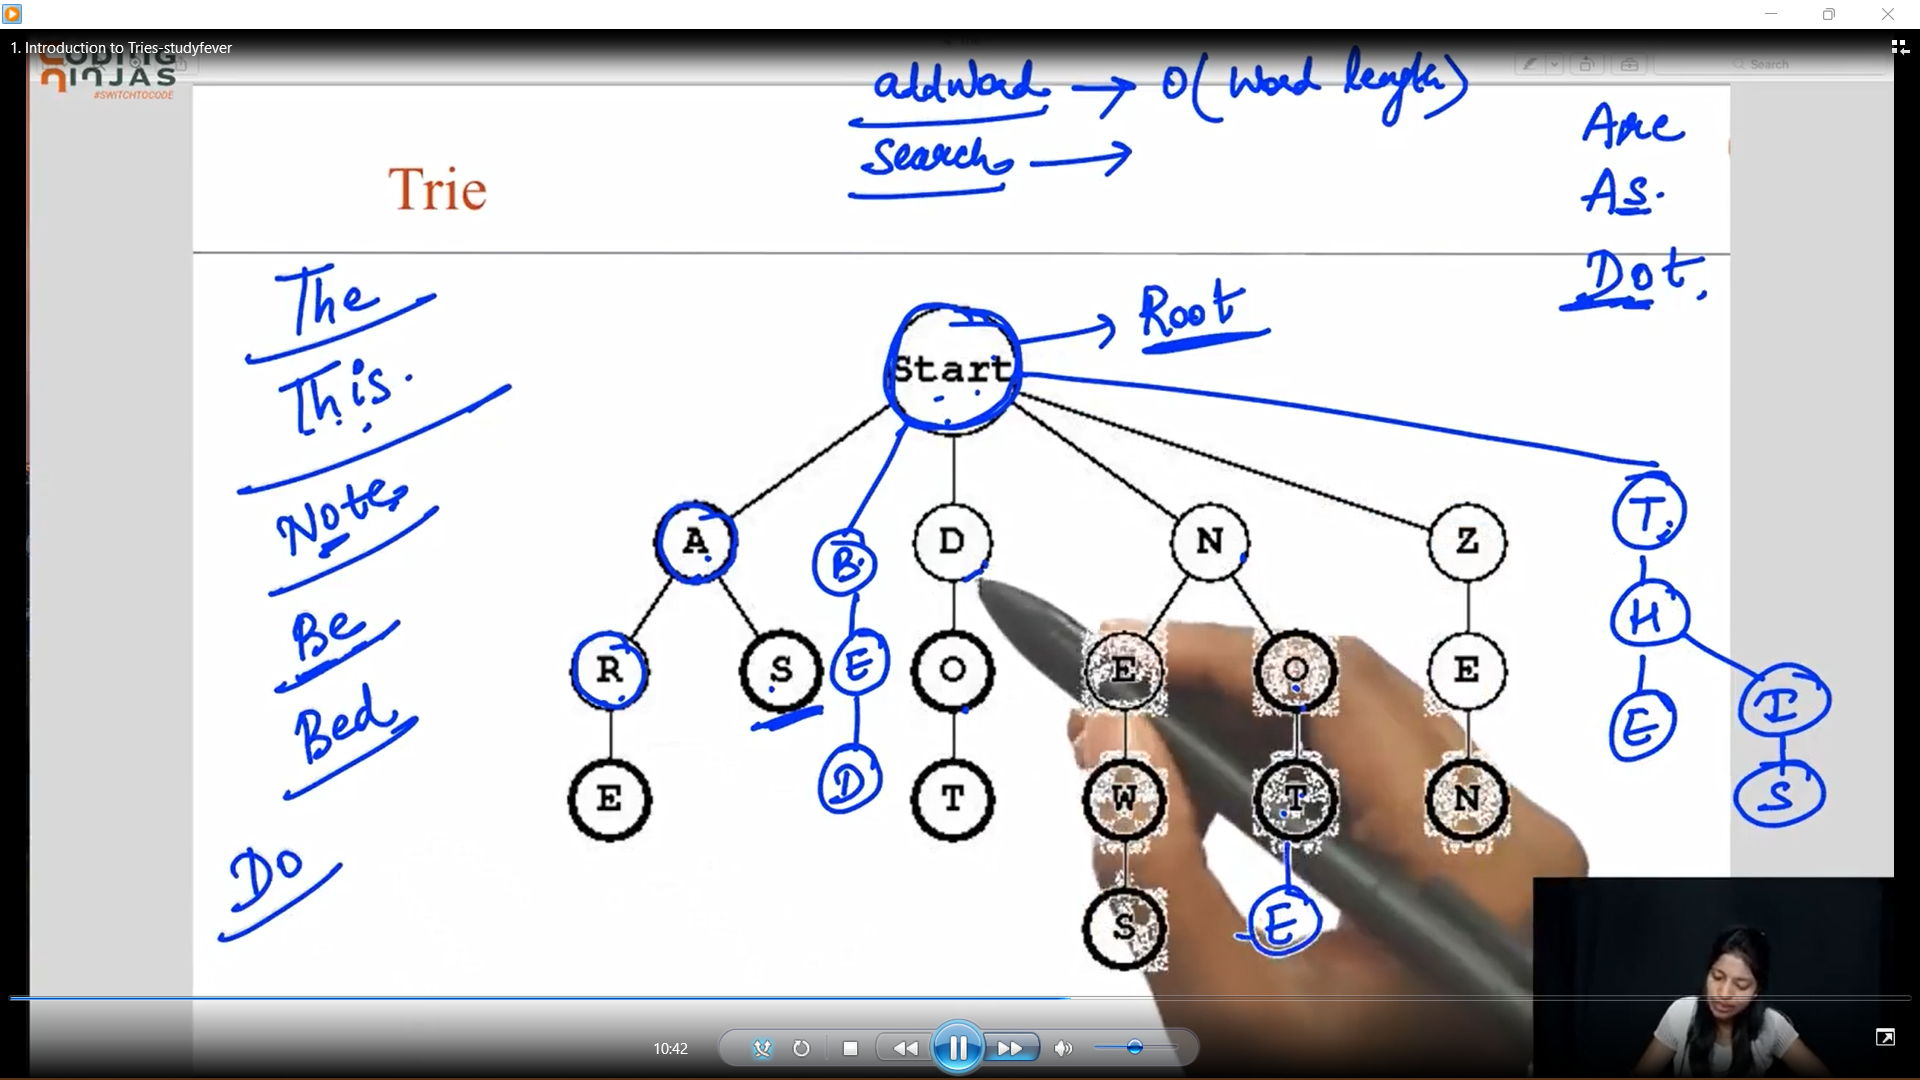 1. Introduction to Tries-studyfever
CODING
NINJAS
#SWITCHTOCODE
Search
addword → O(word length)
Search →
Are
As.
Dot.
Trie
The
This.
Note
Be
Bed
Do
Root
Start
A B D N Z T
R S E O E O E H
E D T W T N E I
S E S
10:42